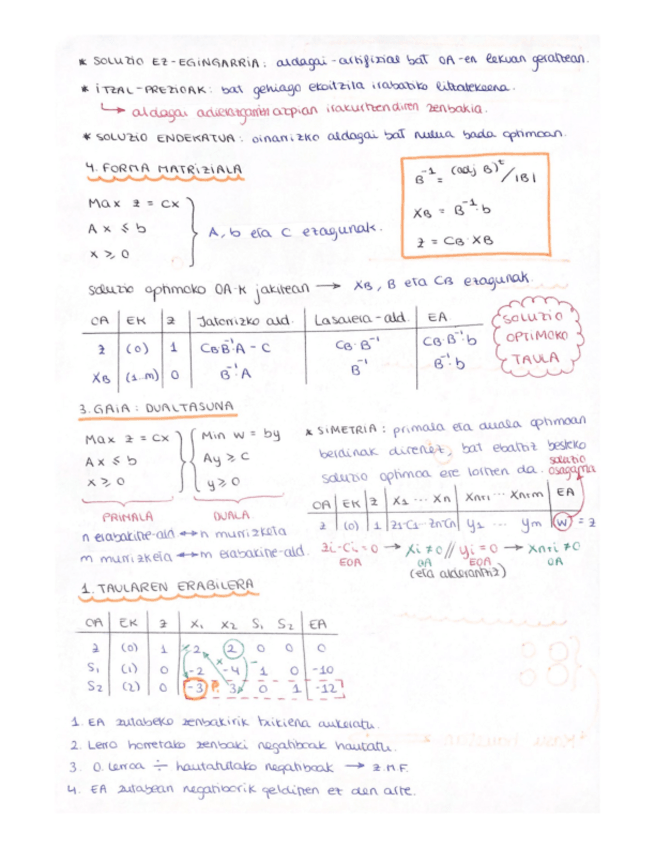 * SOLUZIO EZ-EGINGARRIA: aldagai-artifizial bat OA-en lekuan geratzean.
* ITZAL-PREZIOAK: bat gehiago ekoitzita irabaziko litzatekeena.
↳ aldagai adierazgarrien azpian irakurtzen diren zenbakia.
* SOLUZIO ENDEKATUA: oinarrizko aldagai bat nulua bada optimoan.
4. FORMA MATRIZIALA
B⁻¹ = (adj B)ᵗ / |B|
XB = B⁻¹·b
z = CB·XB
Max z = cx
Ax ≤ b
x ≥ 0
A, b eta C ezagunak.
Soluzio optimoko OA-k jakitean → XB, B eta CB ezagunak.
OA | EK | z | Jatorrizko ald. | Lasaiera-ald. | EA
z | (0) | 1 | CB B⁻¹·A - C | CB·B⁻¹ | CB·B⁻¹·b
XB | (1..m) | 0 | B⁻¹·A | B⁻¹ | B⁻¹·b
SOLUZIO
OPTIMOKO
TAULA
3. GAIA: DUALTASUNA
Max z = cx
Ax ≤ b
x ≥ 0
PRIMALA
Min w = by
Ay ≥ c
y ≥ 0
DUALA
n erabakitze-ald ↔ n murrizketa
m murrizketa ↔ m erabakitze-ald.
* SIMETRIA: primala eta duala optimoan
berdinak direnez, bat ebatziz besteko
soluzio optimoa ere lortzen da.
soluzio osagarria
OA | EK | z | X1 ... Xn | Xn+1 ... Xn+m | EA
z | (0) | 1 | z1-C1 ... zn-Cn | y1 ... ym | w = z
zi-Ci = 0 → Xi ≠ 0 // yi = 0 → Xn+i ≠ 0
EOA OA EOA OA
(eta alderantziz)
1. TAULAREN ERABILERA
OA | EK | z | X1 X2 S1 S2 | EA
z | (0) | 1 | 2 2 0 0 | 0
S1 | (1) | 0 | -2 -4 1 0 | -10
S2 | (2) | 0 | -3 3 0 1 | -12
1. EA zutabeko zenbakirik txikiena aukeratu.
2. Lerro horretako zenbaki negatiboak hautatu.
3. 0. lerroa ÷ hautatutako negatiboak → z.m.f.
4. EA zutabean negatiborik gelditzen ez den arte.